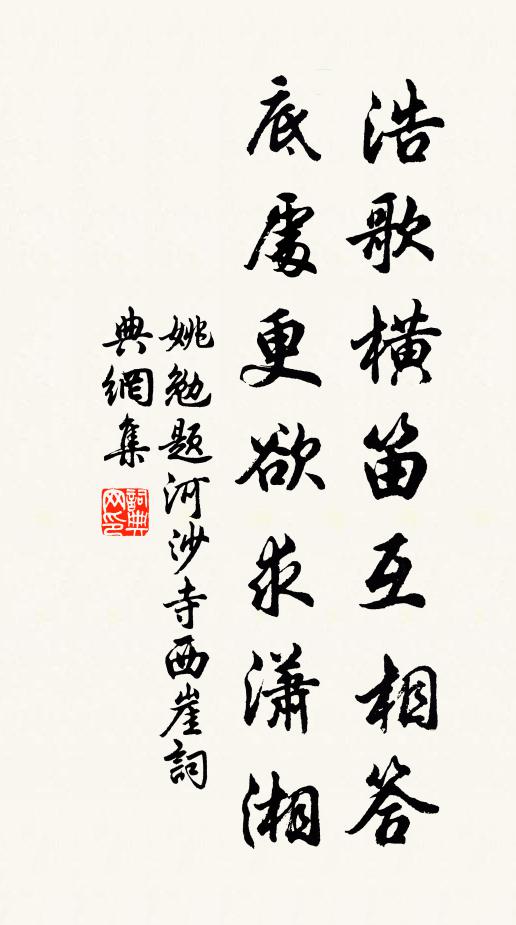 浩歌橫笛互相答
底處更欲求瀟湘
姚勉題河沙寺西崖詞
典網集
詞典網印